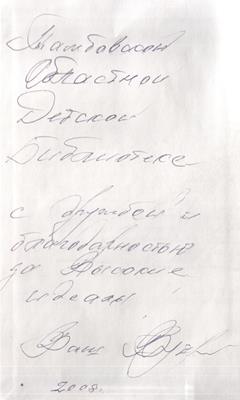 Тамбовской
Областной
Детской
Библиотеке
с дружбой и
благодарностью
за Высокие
идеалы!
Ваш
2008.